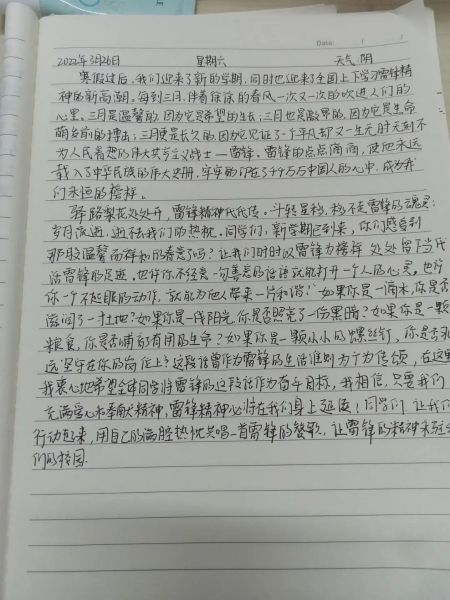 Date:
2022年3月26日 星期六 天气 阴
寒假过后,我们迎来了新的学期,同时也迎来了全国上下学习雷锋精
神的新高潮。每到三月,伴着徐徐的春风一次又一次的吹进人们的
心里。三月是温馨的,因为它是希望的生长;三月也是激昂的,因为它是生命
萌发前的搏击;三月更是长久的,因为它见证了一个平凡却又一生无时无刻不
为人民着想的伟大共产主义战士—雷锋。雷锋的点点滴滴,使他永远
载入了中华民族的伟大史册,牢牢的印在了千千万万中国人的心中,成为我
们永恒的榜样。
驿路梨花处处开,雷锋精神代代传。斗转星移,移不走雷锋的魂灵;
岁月流逝,逝不去我们的热忱。同学们,新学期已到来,你们感受到
那股温馨而祥和的春意了吗?让我们时时以雷锋为榜样,处处留下当代
活雷锋的足迹。也许你不经意一句善意的话语就能打开一个人的心灵,也许
你一个不起眼的动作,就能为他人带来一片和谐!"如果你是一滴水,你是否
滋润了一寸土地?如果你是一线阳光,你是否照亮了一份黑暗?如果你是一颗
粮食,你是否哺育有用的生命?如果你是一颗小小的螺丝钉,你是否永
远坚守在你的岗位上?这段话曾作为雷锋的生活准则为广为传颂,在这里
我衷心地希望全体同学将雷锋的这段话作为奋斗目标,我相信,只要我们
充满爱心和奉献精神,雷锋精神必将在我们身上延续!同学们,让我们
行动起来,用自己的满腔热忱共唱一首雷锋的赞歌,让雷锋的精神永驻
们的校园.